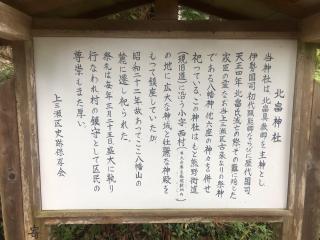 北畠神社
当神社は、北畠具教卿を主神とし
伊勢国司初代顕能卿ならびに歴代国司、
天正四年北畠氏滅亡の際その難に殉じた
家臣の霊などを上三瀬区古来よりの祭神
である八幡神他六座の神々を併せ
祀っている。この神社はもと熊野街道
(現旧道)に沿う小字西村
の地に広大な神域と壮麗な神殿を
もって鎮座していたが
昭和二十二年故あってここ八幡山の
麓に遷し祀られた
祭礼は毎年三月二十五日盛大に執り
行なわれ村の鎮守として区民の
尊崇もまた厚い。
上三瀬区史跡保存会